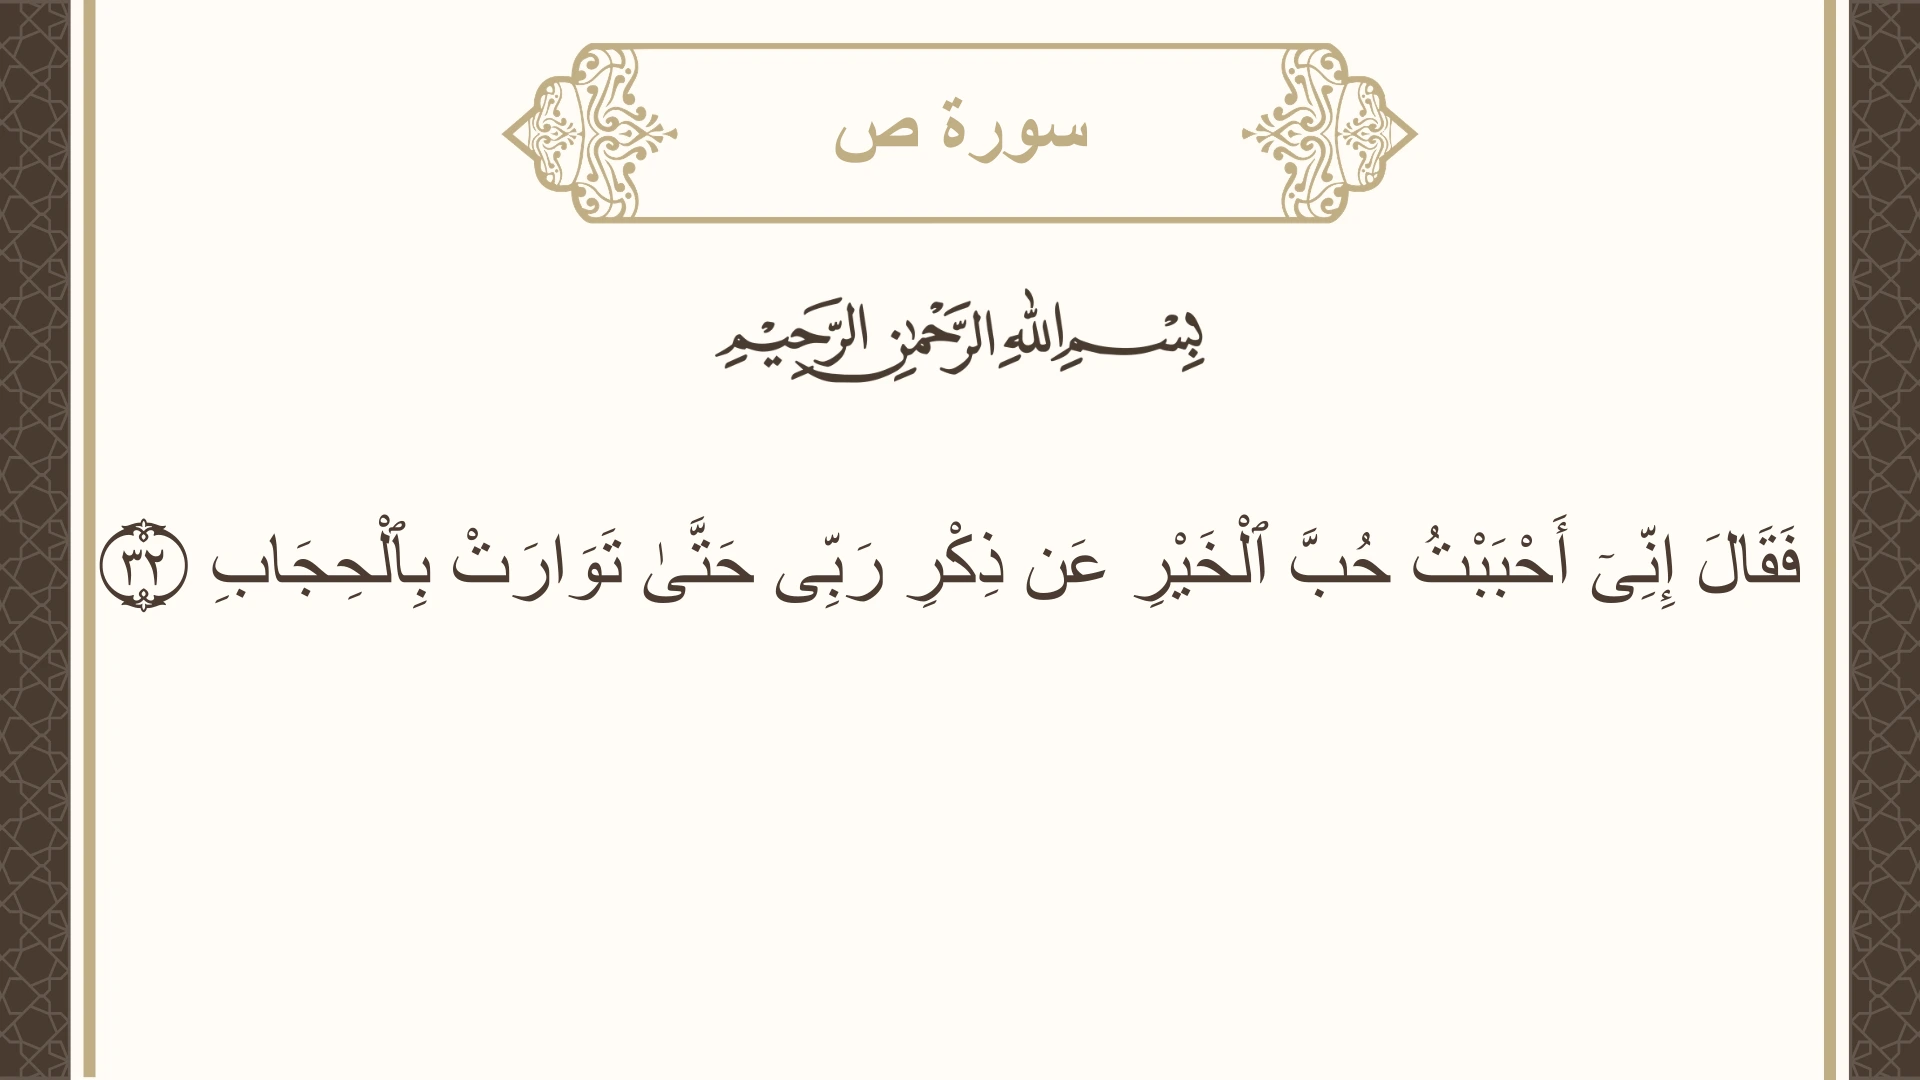 سورة ص
بِسْمِ اللهِ الرَّحْمٰنِ الرَّحِيْمِ
فَقَالَ إِنِّىٓ أَحْبَبْتُ حُبَّ ٱلْخَيْرِ عَن ذِكْرِ رَبِّى حَتَّىٰ تَوَارَتْ بِٱلْحِجَابِ ٣٢